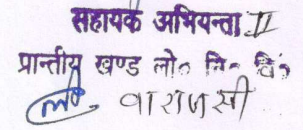 सहायक अभियन्ता II
प्रान्तीय खण्ड लो० नि० वि०
वाराणसी